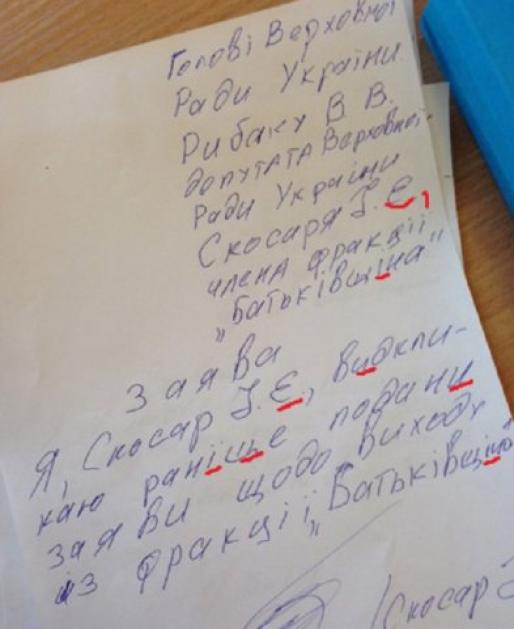 Голові Верховної
Ради України
Рибаку В. В.
депутата Верховної
Ради України
Скосаря І. Є,
члена фракції
"Батьківщіна"
Заява
Я, Скосар І. Є, видкли-
каю раніше подани
заяви щодо виходу
из фракції "Батьківщіна"
/Скосар